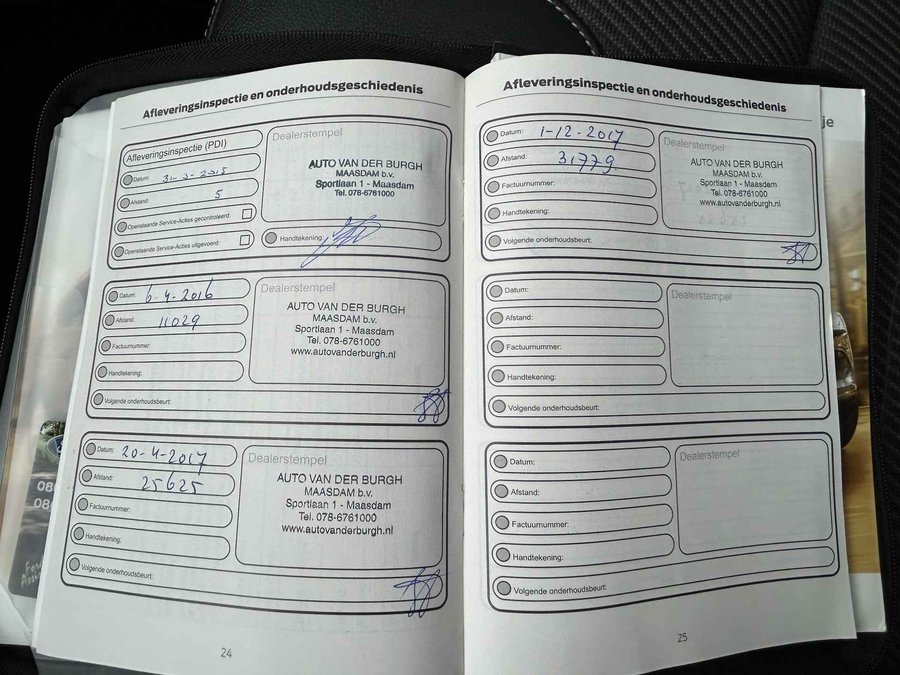 Afleveringsinspectie en onderhoudsgeschiedenis
Afleveringsinspectie (PDI)
Datum: 31-3-2015
Afstand: 5
Openstaande Service-Acties gecontroleerd:
Openstaande Service-Acties uitgevoerd:
Dealerstempel
AUTO VAN DER BURGH
MAASDAM b.v.
Sportlaan 1 - Maasdam
Tel. 078-6761000
Handtekening:
Datum: 6-4-2016
Afstand: 11029
Factuurnummer:
Handtekening:
Volgende onderhoudsbeurt:
Dealerstempel
AUTO VAN DER BURGH
MAASDAM b.v.
Sportlaan 1 - Maasdam
Tel. 078-6761000
www.autovanderburgh.nl
Datum: 20-4-2017
Afstand: 25625
Factuurnummer:
Handtekening:
Volgende onderhoudsbeurt:
Dealerstempel
AUTO VAN DER BURGH
MAASDAM b.v.
Sportlaan 1 - Maasdam
Tel. 078-6761000
www.autovanderburgh.nl
24
Afleveringsinspectie en onderhoudsgeschiedenis
Datum: 1-12-2017
Afstand: 31779
Factuurnummer:
Handtekening:
Volgende onderhoudsbeurt:
Dealerstempel
AUTO VAN DER BURGH
MAASDAM b.v.
Sportlaan 1 - Maasdam
Tel. 078-6761000
www.autovanderburgh.nl
Datum:
Afstand:
Factuurnummer:
Handtekening:
Volgende onderhoudsbeurt:
Dealerstempel
Datum:
Afstand:
Factuurnummer:
Handtekening:
Volgende onderhoudsbeurt:
Dealerstempel
25